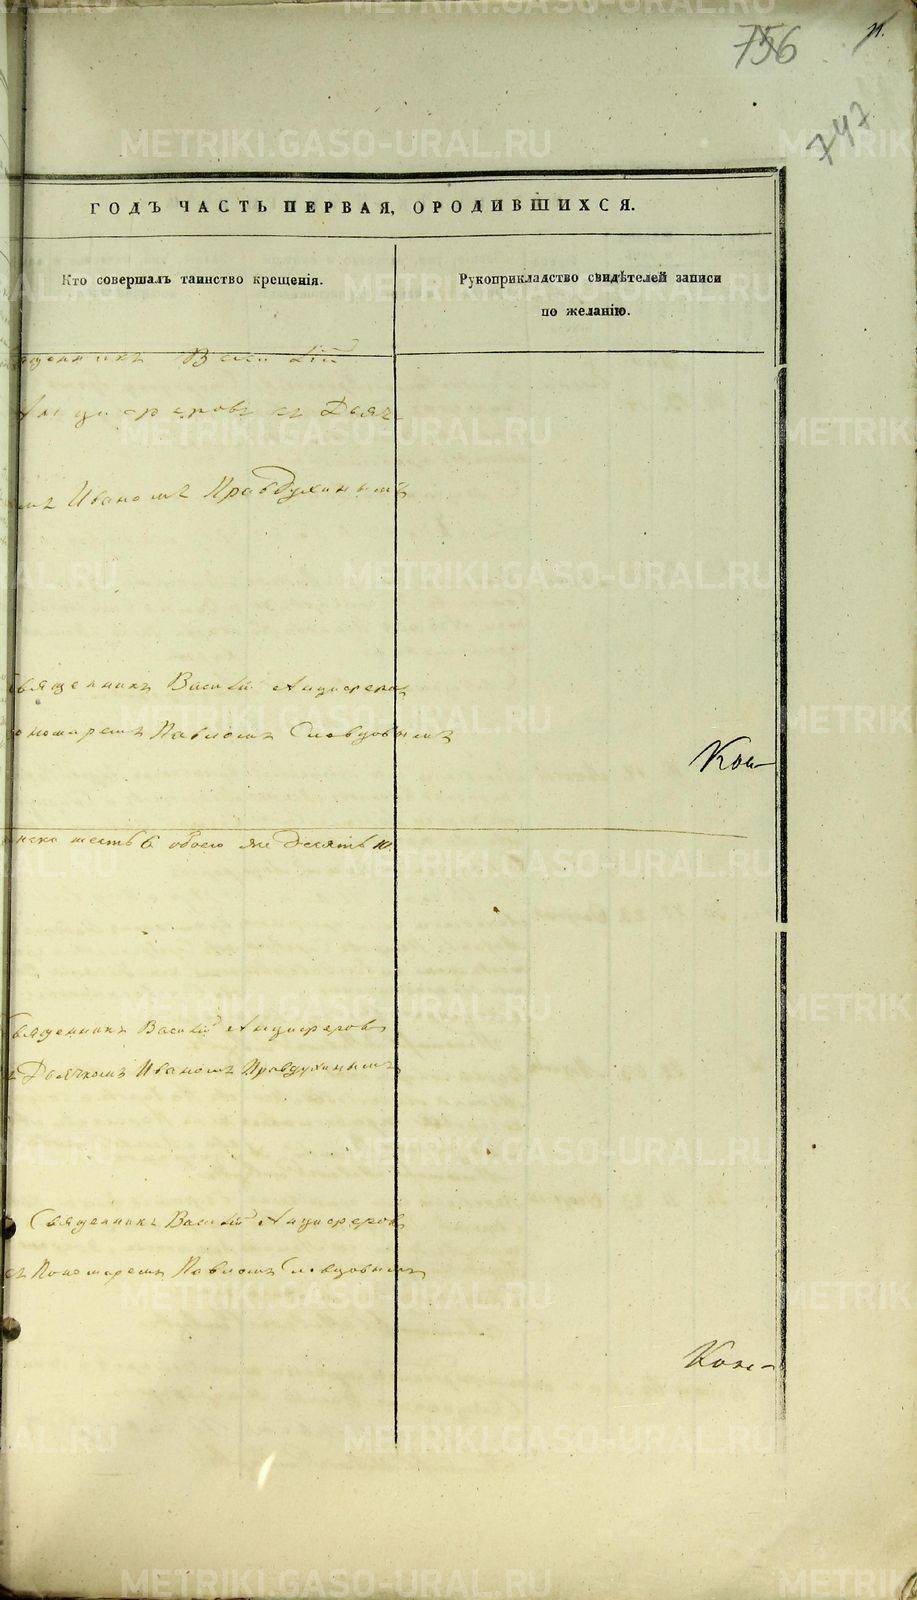 756
747
ГОДЪ ЧАСТЬ ПЕРВАЯ, ОРОДИВШИХСЯ.
Кто совершалъ таинство крещенія.
Рукоприкладство свидѣтелей записи
по желанію.
щенникъ Василій
Анциферовъ съ Дьяч-
мъ Иваномъ Правдухинымъ
Священникъ Василій Анциферов
ономаремъ Павломъ Словцовымъ
Кон-
нска шесть 6. обоего же десять 10.
Священникъ Василій Анциферов
ъ Дьячкомъ Иваномъ Правдухинымъ
Священникъ Василій Анциферов
съ Пономаремъ Павломъ Словцовымъ
METRIKI.GASO-URAL.RU